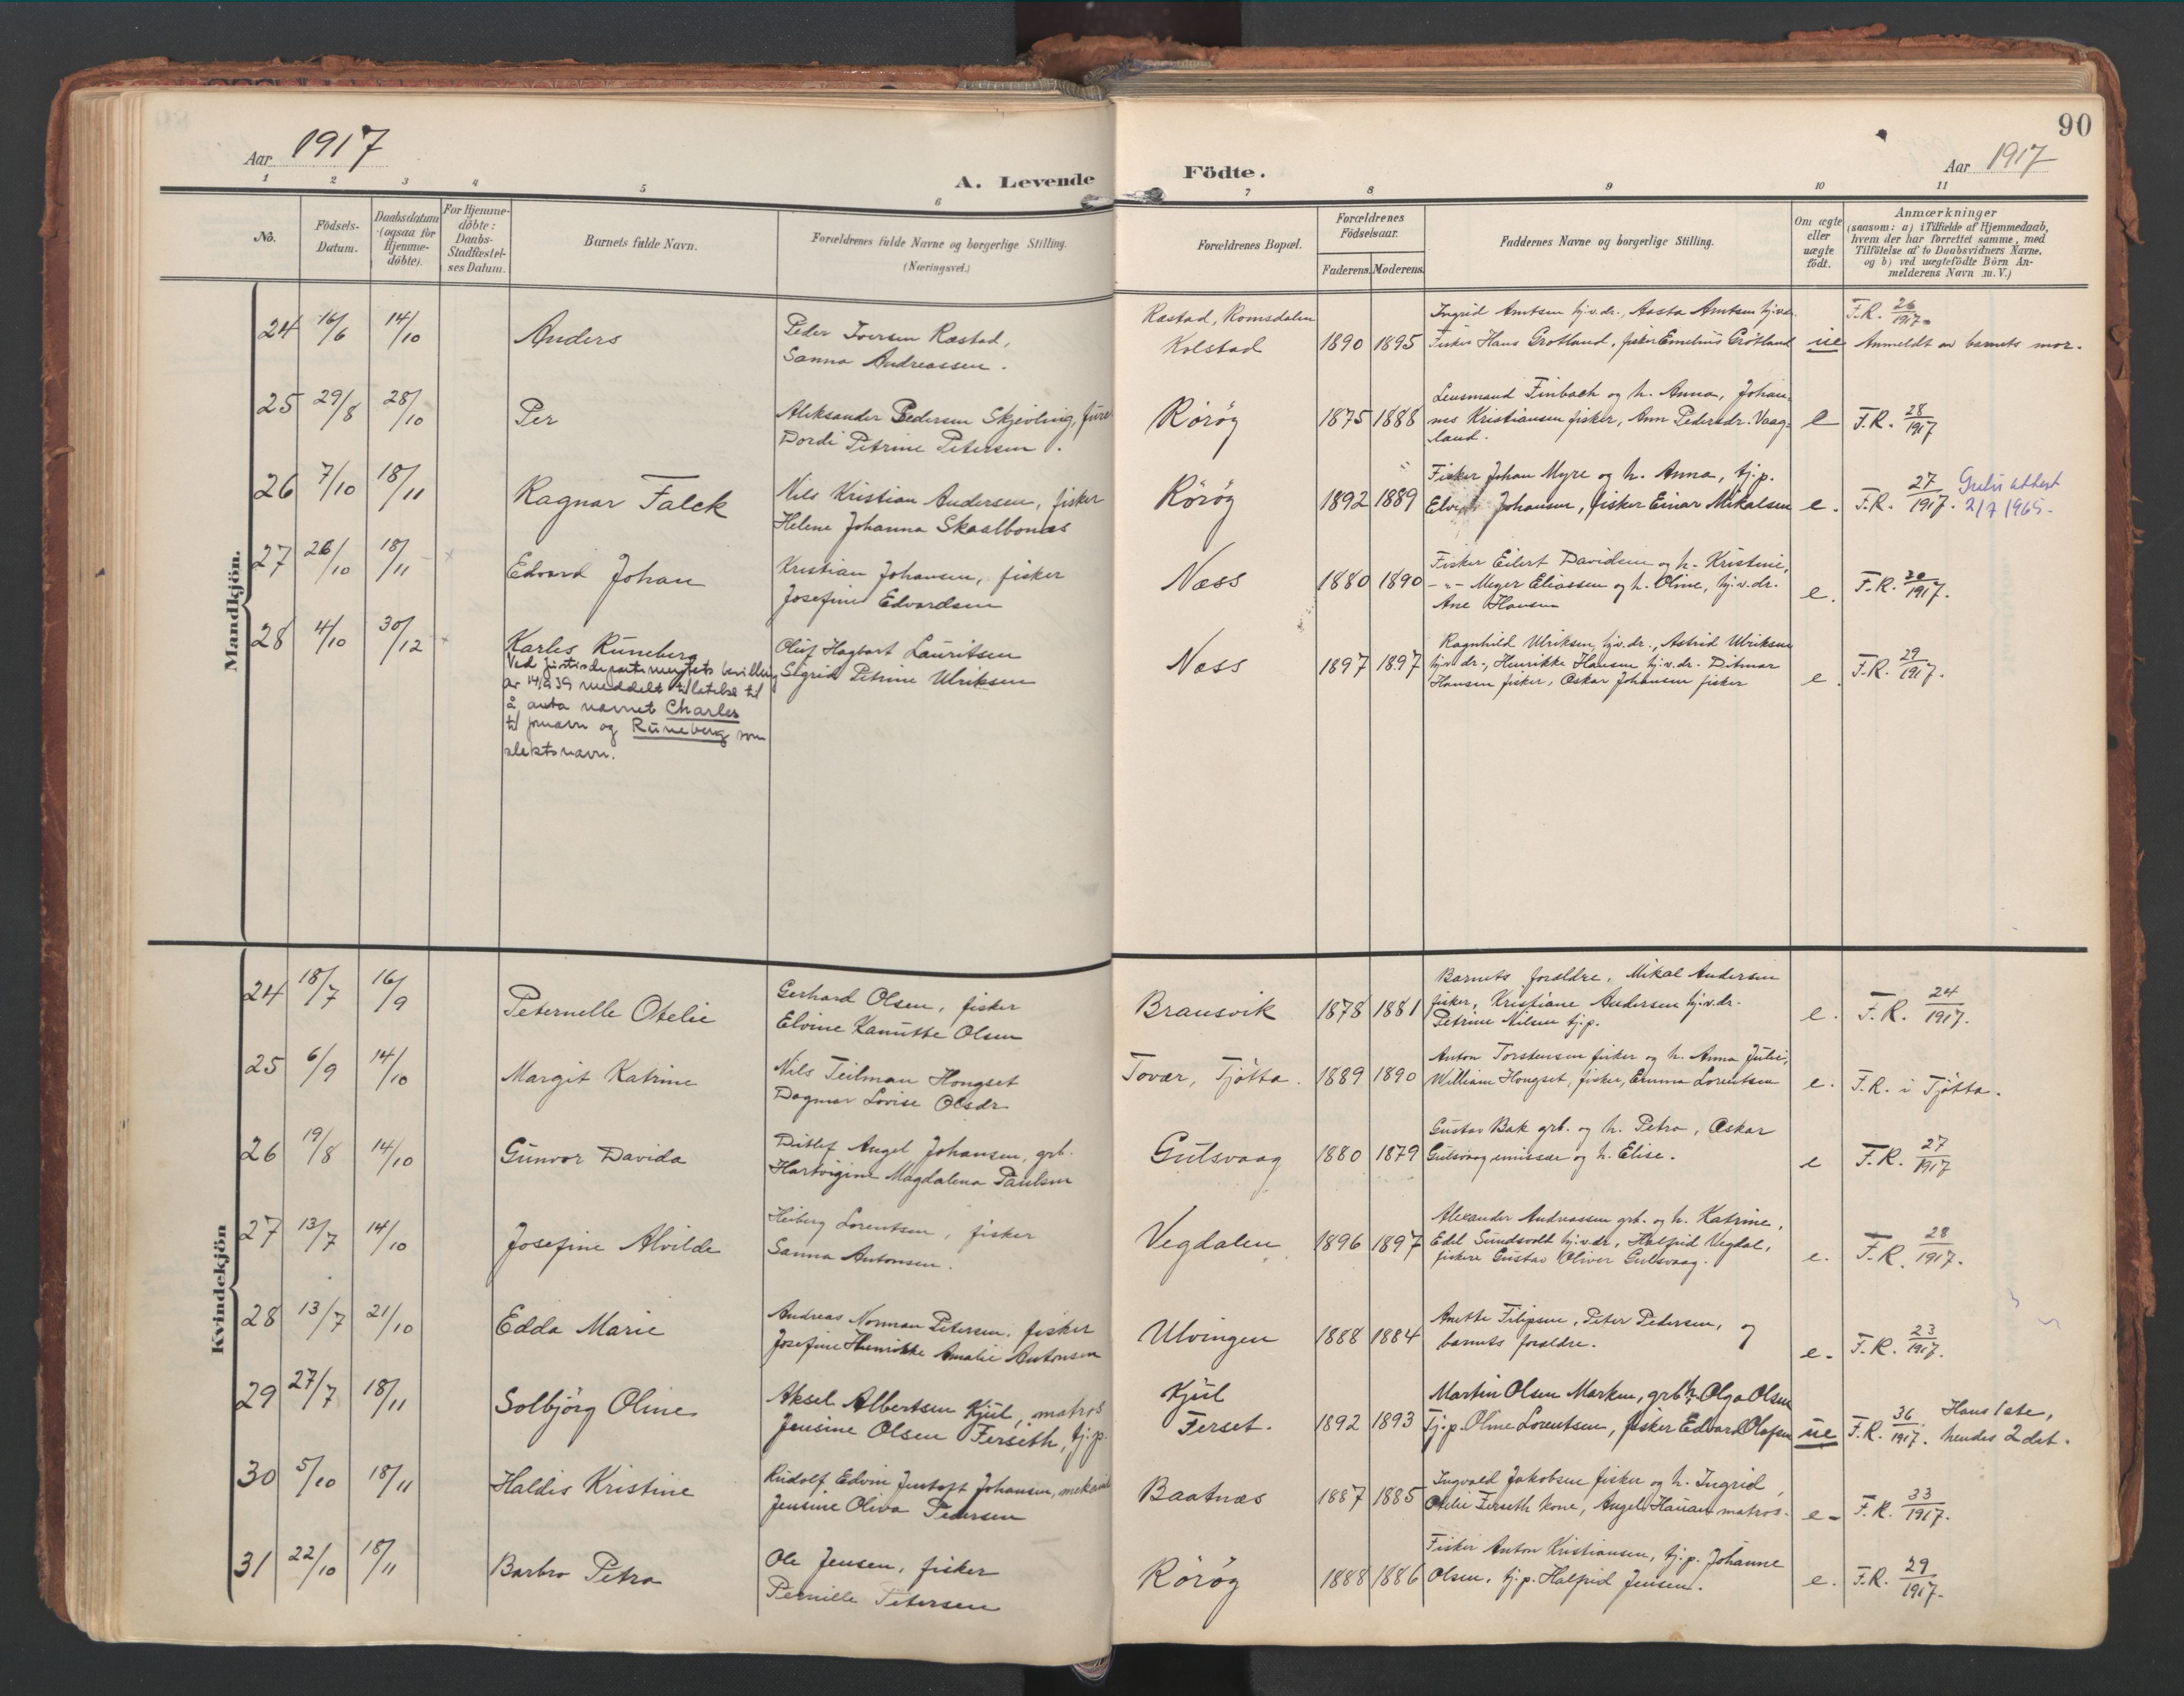 90
Aar 1917
A. Levende Födte.
Aar 1917
1 2 3 4 5 6 7 8 9 10 11
No.
Födsels-
Datum.
Daabsdatum
(ogsaa for
Hjemme-
döbte).
For Hjemme-
döbte:
Daabs-
Stadfæstel-
ses Datum.
Barnets fulde Navn.
Forældrenes fulde Navne og borgerlige Stilling.
(Næringsvei.)
Forældrenes Bopæl.
Forældrenes
Födselsaar.
Faderens. Moderens.
Faddernes Navne og borgerlige Stilling.
Om ægte
eller
uægte
födt.
Anmærkninger
(saasom: a) i Tilfælde af Hjemmedaab,
hvem der har forrettet samme, med
Tilföielse af to Daabsvidners Navne.
og b) ved uægtefödte Börn An-
melderens Navn m. V.)
Mandkjön.
24 16/6 14/10 Anders
Peder Iversen Rastad,
Sanna Andreassen.
Rastad, Romsdalen
Kolstad
1890 1895
Ingrid Amtsen hj.v.dr., Aasta Amtsen hj.v.dr.
Fisker Hans Grøtland, fisker Emelius Grøtland
ue
F.R. 26/1917.
Anmeldt av barnets mor.
25 29/8 28/10 Per
Aleksander Pedersen Skjevling,
Dordi Petrine Petersen.
Rörøy
1875 1888
Lensmand Finbach og h. Anna, Johan-
nes Kristiansen fisker, Ann Pedersdr. Vaag-
land.
e
F.R. 28/1917
26 7/10 18/11 Ragnar Falck
Nils Kristian Andersen, fisker
Helene Johanna Skaalbones
Rörøy
1892 1889
Fisker Johan Myre og h. Anna, tj.p.
Johansen, fisker Einar Mikalsen
e.
F.R. 27/1917.
2/7 1965.
27 26/10 18/11 Edvard Johan
Kristian Johansen, fisker
Josefine Edvardsen
Næss
1880 1890
Fisker Eilert Davidsen og h. Kristine,
- " - Meyer Eliassen og h. Oline, hj.v.dr.
Ane Hansen
e.
F.R. 30/1917.
28 4/10 30/12 Karles Runeberg
Ved justisdepartementets bevilling
av 14/9 39 meddelt tillatelse til
å anta navnet Charles
til fornavn og Runeberg som
slektsnavn.
Oluf Hagbart Lauritsen
Sigrid Petrine Ulriksen
Næss
1897 1897
Ragnhild Ulriksen hj.v.dr., Astrid Ulriksen
hj.v.dr., Henrikke Hansen hj.v.dr. Ditmar
Hansen fisker, Oskar Johansen fisker
e.
F.R. 29/1917.
Kvindekjön
24 18/7 16/9 Peternelle Otelie
Gerhard Olsen, fisker
Elvine Kanutte Olsen
Bransvik
1878 1881
Barnets forældre, Mikal Andersen
fisker, Kristiane Andersen hj.v.dr.
Petrine Nilsen tj.p.
e.
F.R. 24/1917.
25 6/9 14/10 Margit Katrine
Nils Teilman Hongset
Dagmar Lovise Olsdr
Tovær, Tjøtta.
1889 1890
Anton Torstensen fisker og h. Anna Julie,
William Hongset, fisker, Emma Lorentsen
e.
F.R. i Tjøtta.
26 19/8 14/10 Gunvor Davida
Ditlef Angel Johansen, grb.
Hartvigine Magdalena Paulsen
Gulsvaag
1880 1879
Gustav Bak grb. og h. Petra, Oskar
Gulsvaag emissær og h. Elise.
e
F.R. 27/1917
27 13/7 14/10 Josefine Alvilde
Heiberg Lorentsen, fisker
Sanna Antonsen.
Vegdalen
1896 1897
Alexander Andreassen grb. og h. Katrine,
Edel Sundsvolt hj.v.dr., Halfrid Vegdal,
fiskere Gustav Oliver Gulsvaag.
e.
F.R. 28/1917.
28 13/7 21/10 Edda Marie
Andreas Norman Petersen, fisker
Josefine Henrikke Amalie Antonsen
Ulvingen
1888 1884
Anette Filipsen, Peter Pedersen, og
barnets forældre.
e.
F.R. 23/1917.
29 27/7 18/11 Solbjörg Oline
Aksel Albertsen Kjul, matros
Jensine Olsen Ferseth, tj.p.
Kjul
Ferset.
1892 1893
Martin Olsen Marken, grb. h. Olga Olsen
Tj.p. Oline Lorentsen, fisker Edvard Olafsen
ue
F.R. 36/1917. Hans 1ste,
hendes 2det.
30 5/10 18/11 Haldis Kristine
Rudolf Edvin Jentoft Johansen,
Jensine Oliva Pedersen
Baatnæs
1887 1885
Ingvald Jakobsen fisker og h. Ingrid,
Otelie Ferseth kone, Angel Hauan matros.
e.
F.R. 33/1917.
31 22/10 18/11 Barbro Petra
Ole Jensen, fisker
Pernille Petersen
Rörøy
1888 1886
Fisker Anton Kristiansen, tj.p. Johanne
Olsen, tj.p. Halfrid Jensen.
e.
F.R. 29/1917.